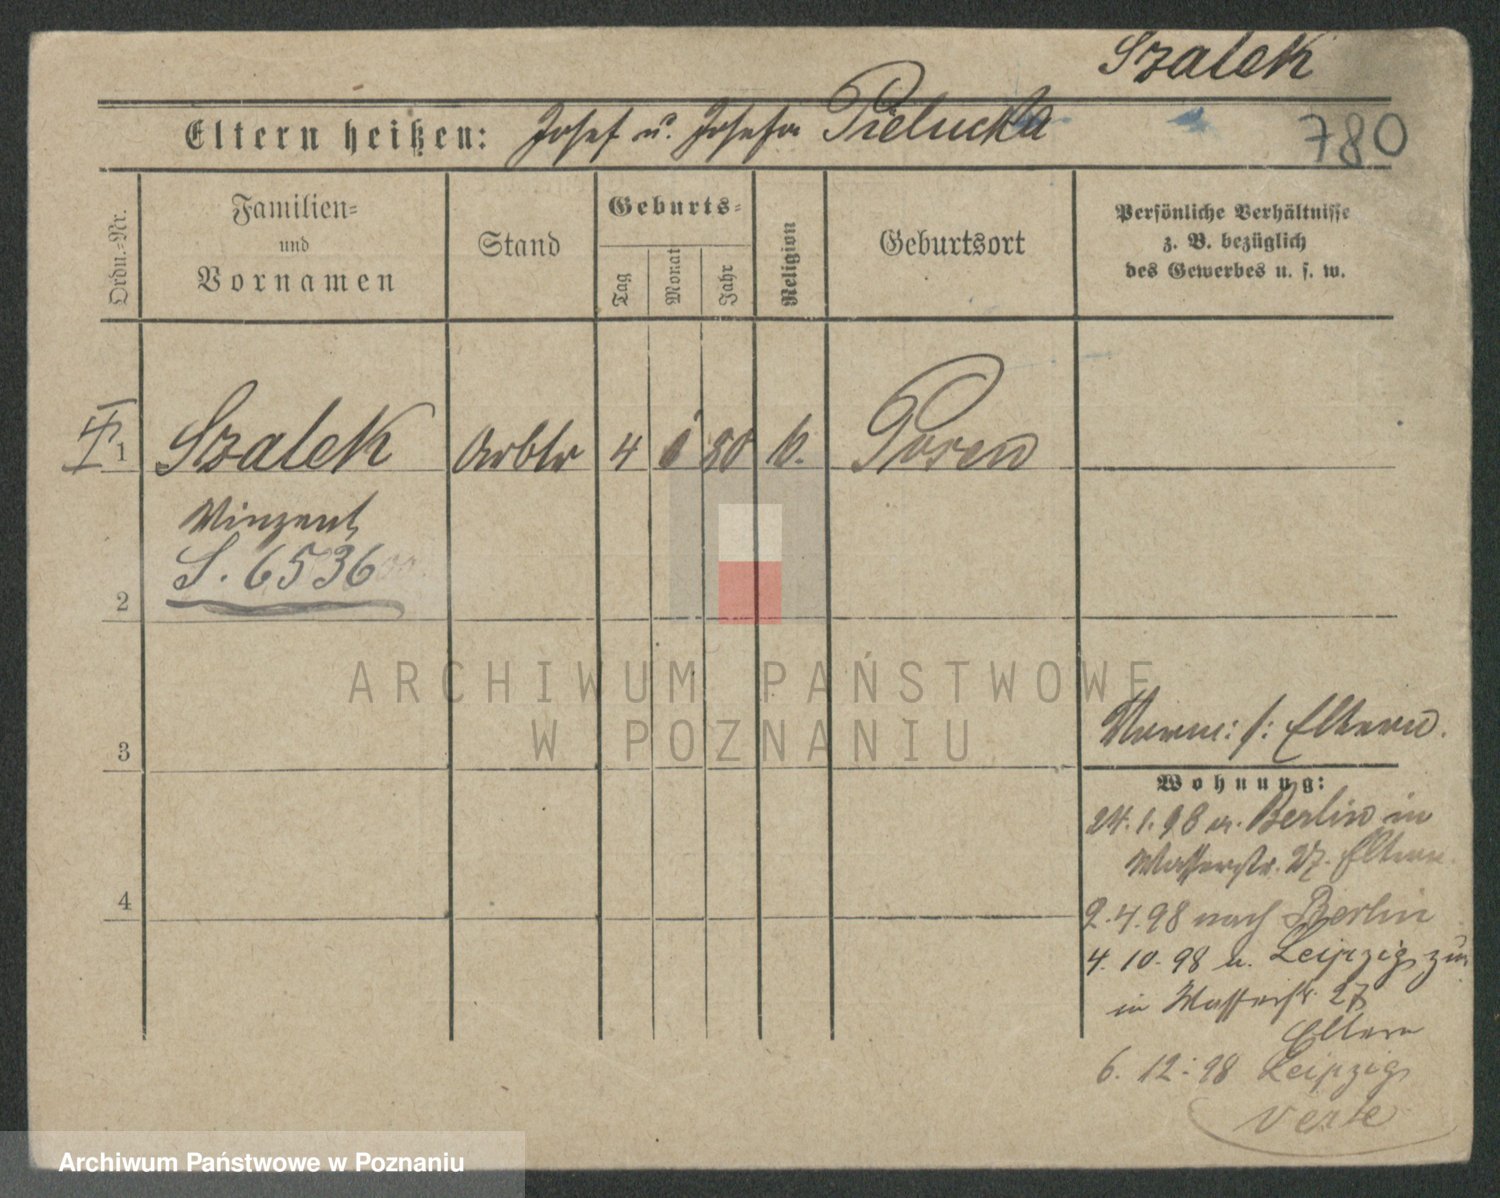 Szalek
Eltern heißen: Josef u. Josefa Pielucka
780
Ordn.=Nr.
Familien=
und
Vornamen
Stand
Geburts=
Tag
Monat
Jahr
Religion
Geburtsort
Persönliche Verhältnisse
z. B. bezüglich
des Gewerbes u. s. w.
1 Szalek Arbtr 4 80 k. Posen
Vinzent
S. 6536
2
ARCHIWUM PAŃSTWOWE
W POZNANIU
3
Eltern.
Wohnung:
24.1.98 v. Berlin in
Wasserstr. 27. Eltern
4
2.4.98 nach Berlin
4.10.98 v. Leipzig zur
in Wasserstr. 27
Eltern
6.12.98 Leipzig
verte
Archiwum Państwowe w Poznaniu